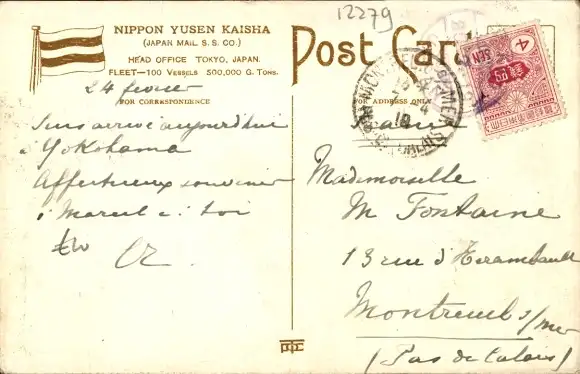 12279
NIPPON YUSEN KAISHA
(JAPAN MAIL S. S. CO.)
HEAD OFFICE TOKYO, JAPAN.
FLEET—100 VESSELS 500,000 G. TONS.
FOR CORRESPONDENCE
24 février
Suis arrivé aujourd'hui
à Yokohama
Affectueux souvenir
à Marcel et toi
Post Card
FOR ADDRESS ONLY
4
Mademoiselle
M Fontaine
13 rue d'Hérambault
Montreuil s/mer
(Pas de Calais)